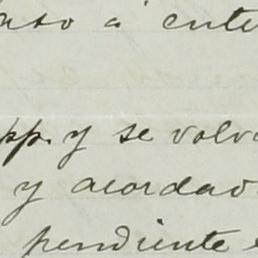 paso á ente
pp. y se volv
y acordav
pendiente